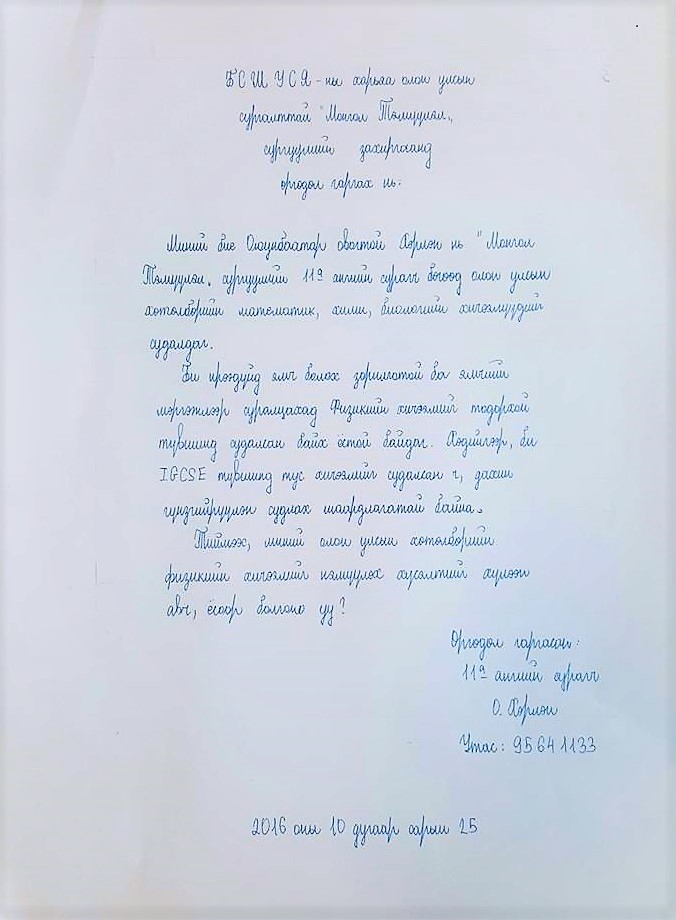 БСШУСЯ-ны харьяа олон улсын
сургалттай "Монгол Тэмүүлэл"
сургуулийн захиргаанд
өргөдөл гаргах нь:
Миний бие Оюунбаатар овогтой Хэрлэн нь "Монгол
Тэмүүлэл" сургуулийн 11ª ангийн сурагч бөгөөд олон улсын
хөтөлбөрийн математик, хими, биологийн хичээлүүдийг
судалдаг.
Би ирээдүйд эмч болох зорилготой ба эмчийн
мэргэжлээр суралцахад Физикийн хичээлийг тодорхой
түвшинд судалсан байх ёстой байдаг. Хэдийгээр, би
IGCSE түвшинд тус хичээлийг судалсан ч, дахин
гүнзгийрүүлэн судлах шаардлагатай байна.
Тиймээс, миний олон улсын хөтөлбөрийн
физикийн хичээлийг нэмүүлэх хүсэлтийг хүлээн
авч, ёсоор болгоно уу?
Өргөдөл гаргасан:
11ª ангийн сурагч
О. Хэрлэн
Утас: 95641133
2016 оны 10 дугаар сарын 25